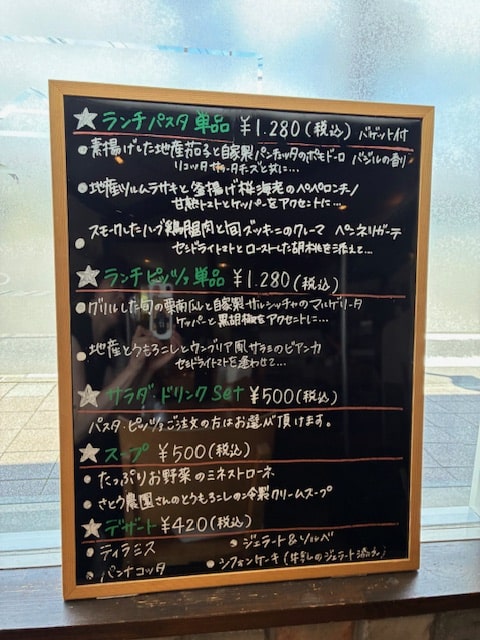 ☆ランチパスタ 単品 ¥1.280(税込) バゲット付
●素揚げした地産茄子と自家製パンチェッタのポモドーロ バジルの香り
リコッタサラータチーズと共に…
●地産ツルムラサキと釜揚げ桜海老のペペロンチーノ
甘熟トマトとケッパーをアクセントに…
●スモークしたハーブ鶏腿肉と旬ズッキーニのクレーマ ペンネリガーテ
セミドライトマトとローストした胡桃を添えて…
☆ランチピッツァ単品 ¥1.280(税込)
●グリルした旬の栗南瓜と自家製サルシッチャのマルゲリータ
ケッパーと黒胡椒をアクセントに…
●地産とうもろこしとウングリア風サラミのビアンカ
セミドライトマトを逢わせて…
☆サラダ・ドリンクSet ¥500(税込)
パスタ・ピッツァご注文の方はお選び頂けます。
☆スープ ¥500(税込)
●たっぷりお野菜のミネストローネ
●さとう農園さんのとうもろこしの冷製クリームスープ
☆デザート ¥420(税込)
●ティラミス ●ジェラート&ソルベ
●パンナコッタ ●シフォンケーキ(牛乳のジェラート添え)